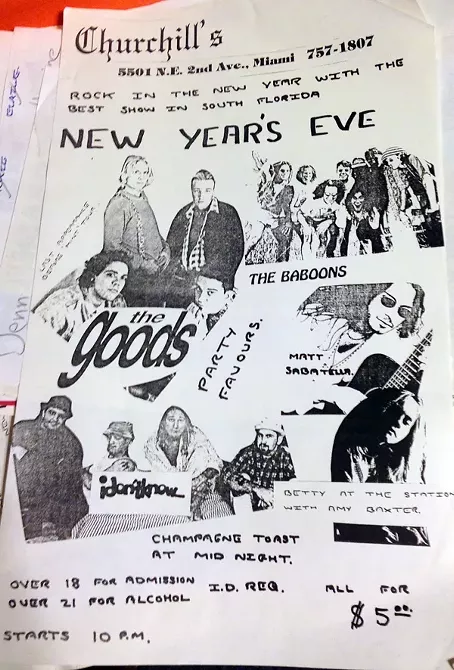 Churchill's
5501 N.E. 2nd Ave., Miami 757-1807
ROCK IN THE NEW YEAR WITH THE
BEST SHOW IN SOUTH FLORIDA
NEW YEAR'S EVE
THE BABOONS
the
goods
PARTY
FAVOURS.
MATT
SABATELLA.
idon'tknow
BETTY AT THE STATION
WITH AMY BAXTER.
CHAMPAGNE TOAST
AT MID NIGHT.
OVER 18 FOR ADMISSION I.D. REQ.
OVER 21 FOR ALCOHOL
ALL FOR
$5.00
STARTS 10 P.M.